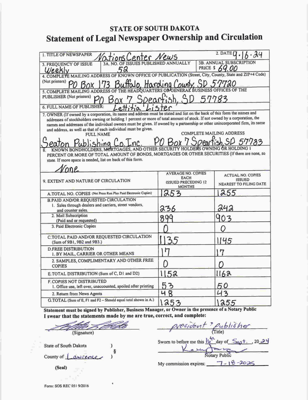 STATE OF SOUTH DAKOTA
Statement of Legal Newspaper Ownership and Circulation
1. TITLE OF NEWSPAPER Nation's Center News 2. DATE 9-16-24
3. FREQUENCY OF ISSUE Weekly 3A. NO. OF ISSUES PUBLISHED ANNUALLY 52 3B. ANNUAL SUBSCRIPTION PRICE $ 69.00
4. COMPLETE MAILING ADDRESS OF KNOWN OFFICE OF PUBLICATION (Street, City, County, State and ZIP+4 Code) (Not printers)
PO Box 173 Buffalo Harding County, SD 57720
5. COMPLETE MAILING ADDRESS OF THE HEADQUARTERS OR GENERAL BUSINESS OFFICES OF THE PUBLISHER (Not printers)
PO Box 7 Spearfish, SD 57783
6. FULL NAME OF PUBLISHER: Letitia Lister
7. OWNER (If owned by a corporation, its name and address must be stated and list on the back of this form the names and addresses of stockholders owning or holding 1 percent or more of total amount of stock. If not owned by a corporation, the names and addresses of the individual owners must be given. If owned by a partnership or other unincorporated firm, its name and address, as well as that of each individual must be given.
FULL NAME COMPLETE MAILING ADDRESS
Seaton Publishing Co. Inc PO Box 7 Spearfish, SD 57783
8. KNOWN BONDHOLDERS, MORTGAGEES, AND OTHER SECURITY HOLDERS OWNING OR HOLDING 1 PERCENT OR MORE OF TOTAL AMOUNT OF BONDS, MORTGAGES OR OTHER SECURITIES (If there are none, so state. If more space is needed, list on back of this form.
None
9. EXTENT AND NATURE OF CIRCULATION
AVERAGE NO. COPIES EACH ISSUES PRECEDING 12 MONTHS
ACTUAL NO. COPIES ISSUED NEAREST TO FILING DATE
A. TOTAL NO. COPIES (Net Press Run Plus Paid Electronic Copies) 1253 1255
B. PAID AND/OR REQUESTED CIRCULATION
1. Sales through dealers and carriers, street vendors, and counter sales. 236 242
2. Mail Subscription (Paid and or requested) 899 903
3. Paid Electronic Copies 0 0
C. TOTAL PAID AND/OR REQUESTED CIRCULATION (Sum of 9B1, 9B2 and 9B3.) 1135 1145
D. FREE DISTRIBUTION
1. BY MAIL, CARRIER OR OTHER MEANS 17 17
2. SAMPLES, COMPLIMENTARY AND OTHER FREE COPIES 0 0
E. TOTAL DISTRIBUTION (Sum of C, D1 and D2) 1152 1162
F. COPIES NOT DISTRIBUTED
1. Office use, left over, unaccounted, spoiled after printing 53 50
2. Return from News Agents 48 43
G. TOTAL (Sum of E, F1 and F2 - Should equal total shown in A.) 1253 1255
Statement must be signed by Publisher, Business Manager, or Owner in the presence of a Notary Public
I swear that the statements made by me are true, correct, and complete:
president Publisher
(Signature) (Title)
State of South Dakota )
County of Lawrence )
(Seal)
Sworn to before me this day of Sept., 2024
Notary Public
My commission expires: 7-18-2025
Form: SOS REC 051 9/2016